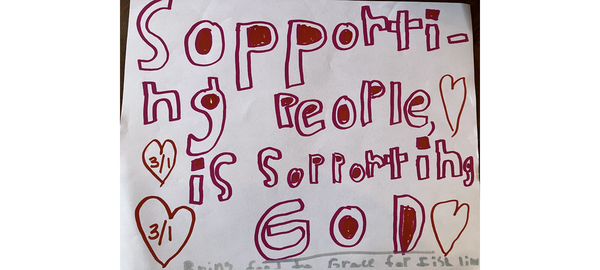 Sopporti-
ng People,
3/1 is Sopporting
3/1 GOD
Bring Grace for